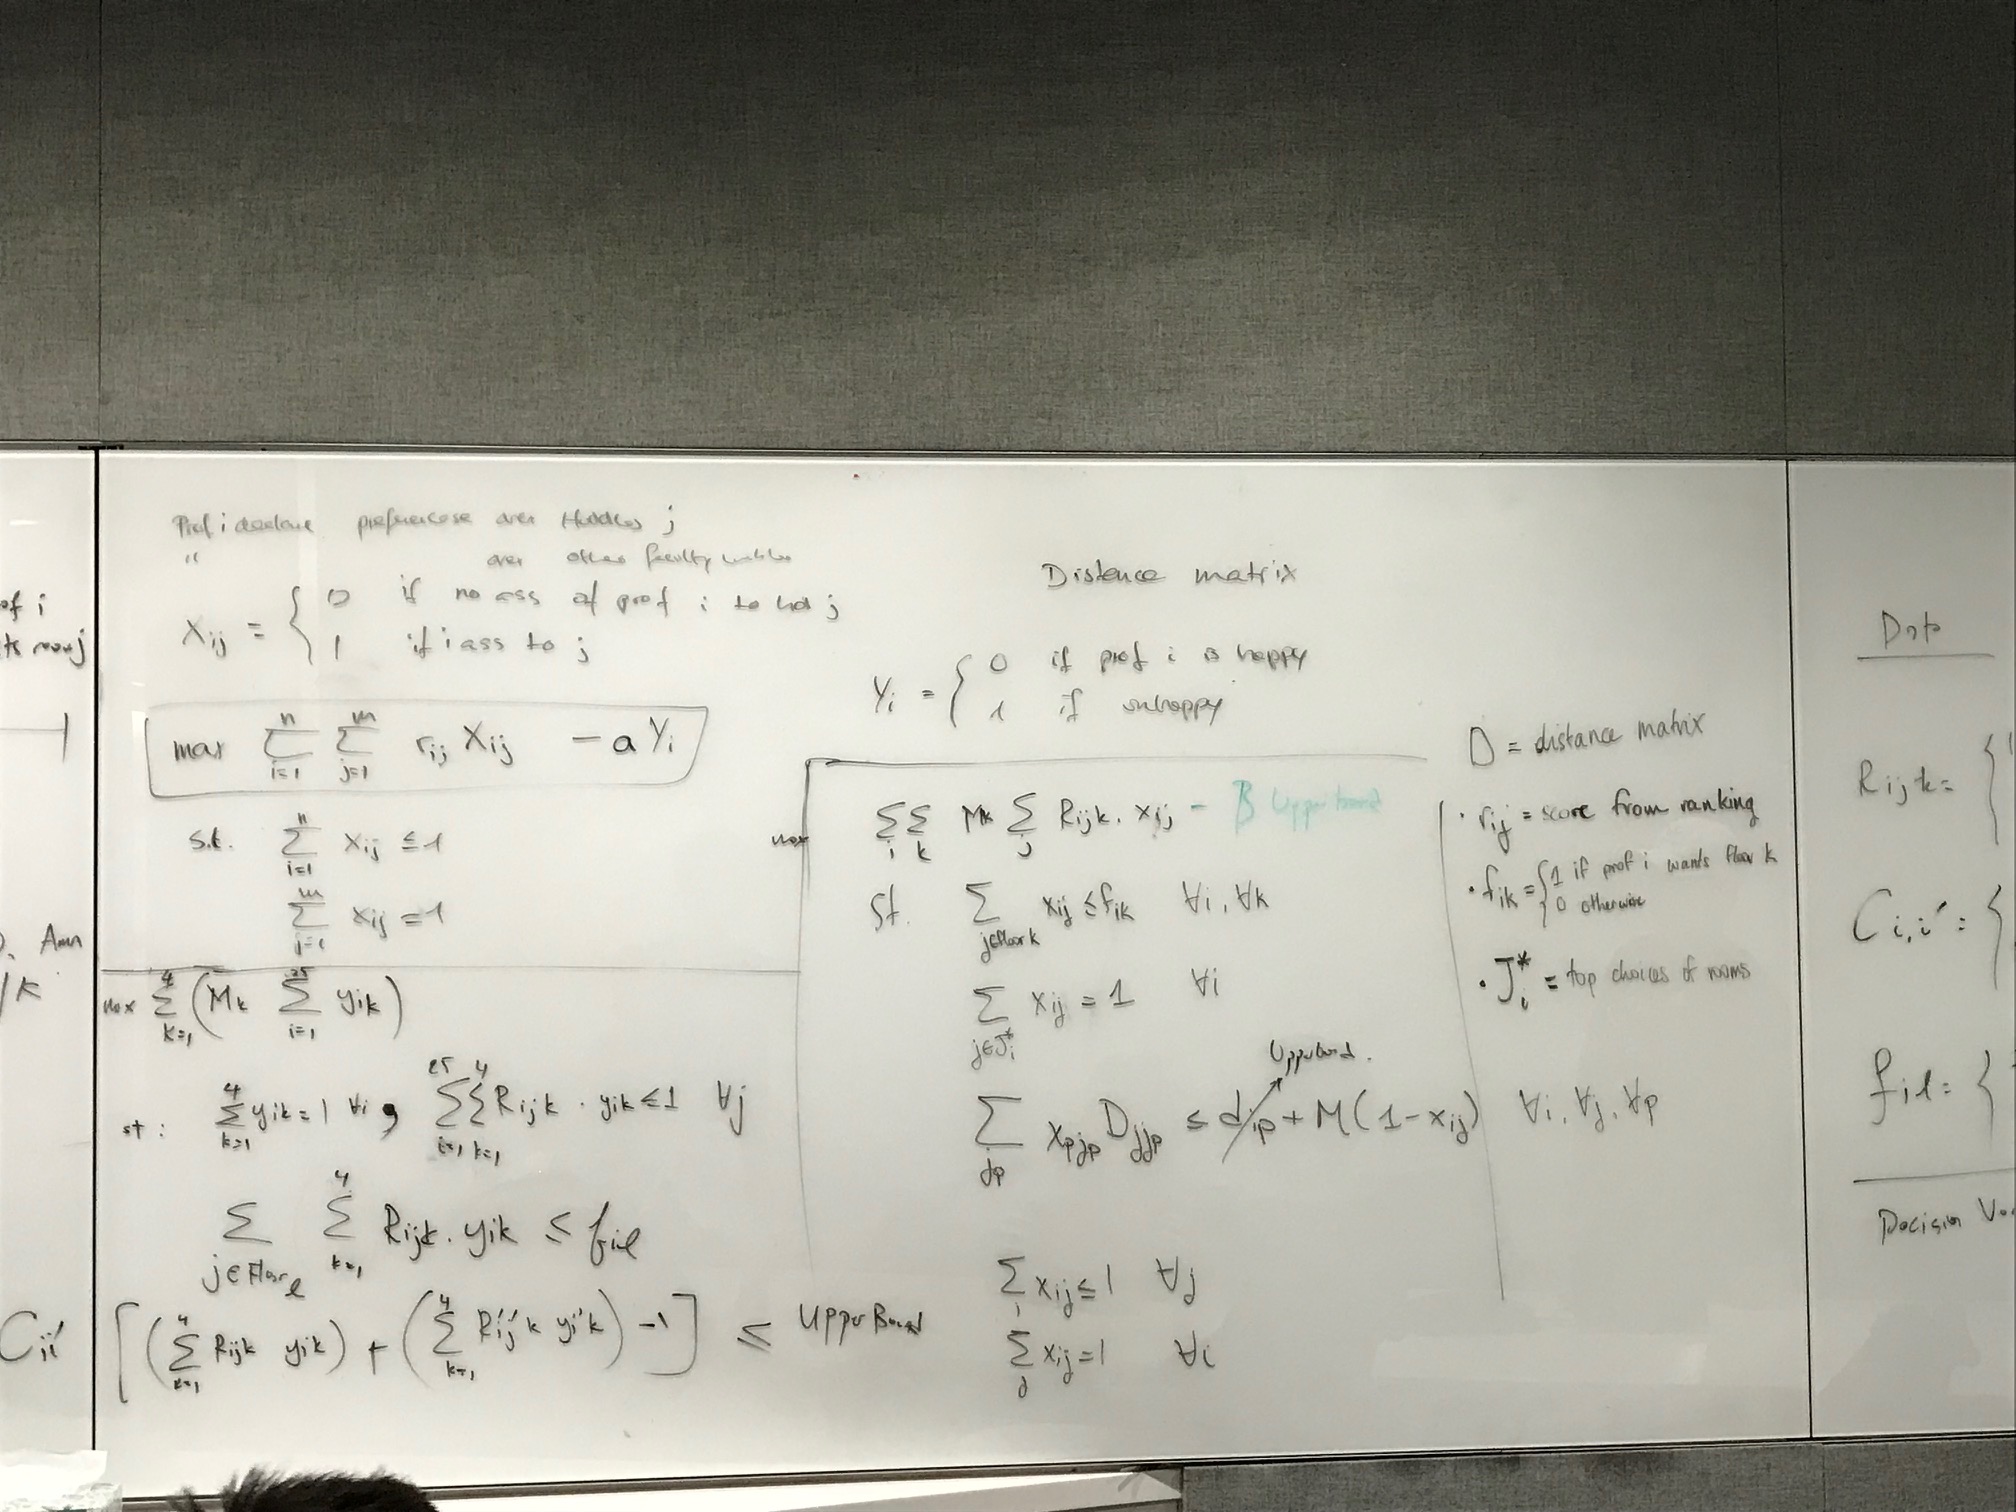 of i
room j
Amn
/k
Prof i declare preferences over Huddles j
" over other faculty
Xij = { 0 if no ass of prof i to hud j
1 if i ass to j
max Σ_{i=1}^{n} Σ_{j=1}^{m} rij Xij - a Yi
s.t. Σ_{i=1}^{n} Xij ≤ 1
Σ_{j=1}^{m} Xij = 1
max Σ_{k=1}^{4} (Mk Σ_{i=1}^{25} yik)
st: Σ_{k=1}^{4} yik = 1 ∀i, Σ_{i=1}^{25} Σ_{k=1}^{4} Rijk · yik ≤ 1 ∀j
Σ_{j∈Floor l} Σ_{k=1}^{4} Rijk · yik ≤ fil
Cii' [(Σ_{k=1}^{4} Rijk yik) + (Σ_{k=1}^{4} Ri'j'k yi'k) - 1] ≤ UpperBound
Distance matrix
Yi = { 0 if prof i is happy
1 if unhappy
max Σ_i Σ_k Mk Σ_j Rijk · xij - B Upperbound
St. Σ_{j∈Floor k} xij ≤ fik ∀i, ∀k
Σ_{j∈J*i} xij = 1 ∀i
Upperbound.
Σ_{jp} xpjp Djjp ≤ dip + M(1 - xij) ∀i, ∀j, ∀p
Σ_i xij ≤ 1 ∀j
Σ_j xij = 1 ∀i
D = distance matrix
· rij = score from ranking
· fik = { 1 if prof i wants floor k
0 otherwise
· J*i = top choices of rooms
Data
Rijk = {
Ci,i' = {
fil = {
Decision Va